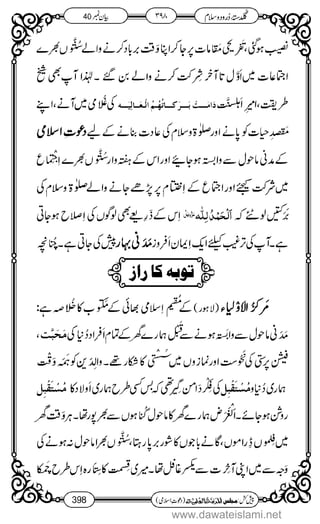 گلدستۂ دُرود و سلام ۳۹۸ بیان نمبر 40
نصیب ہو گئی، یہی تحریجی مقامات پر جا کر اپنا وقت برباد کرنے والے سنّتوں بھرے
اجتماعات میں اوّل تا آخر شرکت کرنے والے بن گئے ۔ لہٰذا آپ بھی شیخِ
طریقت، امیرِ اَہلسنّت دَامَتْ بَرَکَاتُہُمُ الْعَالِیَہ کی غلامی میں آنے، اپنے
مقصدِ حیات کو پانے اور صلوٰۃ و سلام کی عادت بنانے کے لیے دعوت اسلامی
کے مدنی ماحول سے وابستہ ہو جائیے اور اس کے ہفتہ وار سنّتوں بھرے اجتماع
میں شرکت کیجئے اور اجتماع کے اختتام پر پڑھے جانے والے صلوٰۃ و سلام کی
برکتیں لُوٹئے کہ اَلْحَمْدُ لِلّٰہ اس کے ذریعے بھی لوگوں کی اصلاح ہو جاتی
ہے ۔ آپ کی ترغیب کیلئے ایک ایمان افروز مَدَنی بہار پیش کی جاتی ہے ۔ چنانچہ
توبہ کا راز
مَرکزُ الاَوْلِیاء (لاہور) کے مُقیم اسلامی بھائی کے مکتوب کا خلاصہ ہے :
مَدَنی ماحول سے وابستہ ہونے سے قبل ہمارے گھر کے تمام افراد دُنیا کی مَحَبَّت،
فیشن پرستی کی نحوست اور نمازوں میں سُستی کا شکار تھے ۔ والدین کو ہمہ وقت
ہماری دُنیا و مُسْتَقْبِل کی فکر دامن گیر تھی کہ بس کسی طرح ہماری اولاد کا مُسْتَقْبِل
روشن ہو جائے ۔ الغرض ہمارے گھر کا ماحول گناہوں سے بھرپور تھا ۔ ہر وقت گھر
میں فلموں ڈراموں، گانے باجوں کا شور برپا رہتا، سنّتوں بھرا ماحول نہ ہونے کی
وجہ سے میں اپنی آخرت سے یکسر غافل تھا ۔ میری قسمت کا ستارہ اس طرح چمکا
398 پیش کش: مجلس اَلْمَدِیْنَۃُ الْعِلْمِیَّۃ (دعوتِ اسلامی)
www.dawateislami.net